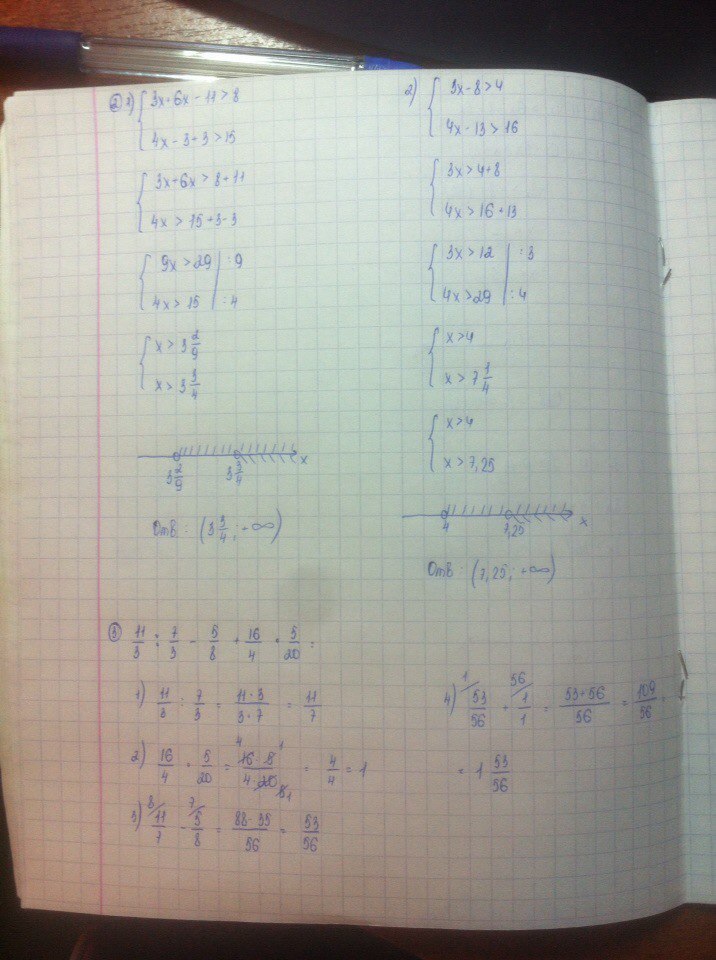 ② 1) { 3x+6x-11>8
4x-3+3>15
{ 3x+6x>8+11
4x>15+3-3
{ 9x>29 | :9
4x>15 | :4
{ x>3 2/9
x>3 3/4
3 2/9 3 3/4 x
Отв: (3 3/4; +∞)
2) { 3x-8>4
4x-13>16
{ 3x>4+8
4x>16+13
{ 3x>12 | :3
4x>29 | :4
{ x>4
x>7 1/4
{ x>4
x>7,25
4 7,25 x
Отв: (7,25; +∞)
③ 11/3 : 7/3 - 5/8 + 16/4 · 5/20 =
1) 11/3 : 7/3 = 11·3/3·7 = 11/7
2) 16/4 · 5/20 = 16·5/4·20 = 4/4 = 1
3) 11/7 - 5/8 = 88-35/56 = 53/56
4) 53/56 + 1/1 = 53+56/56 = 109/56 =
= 1 53/56